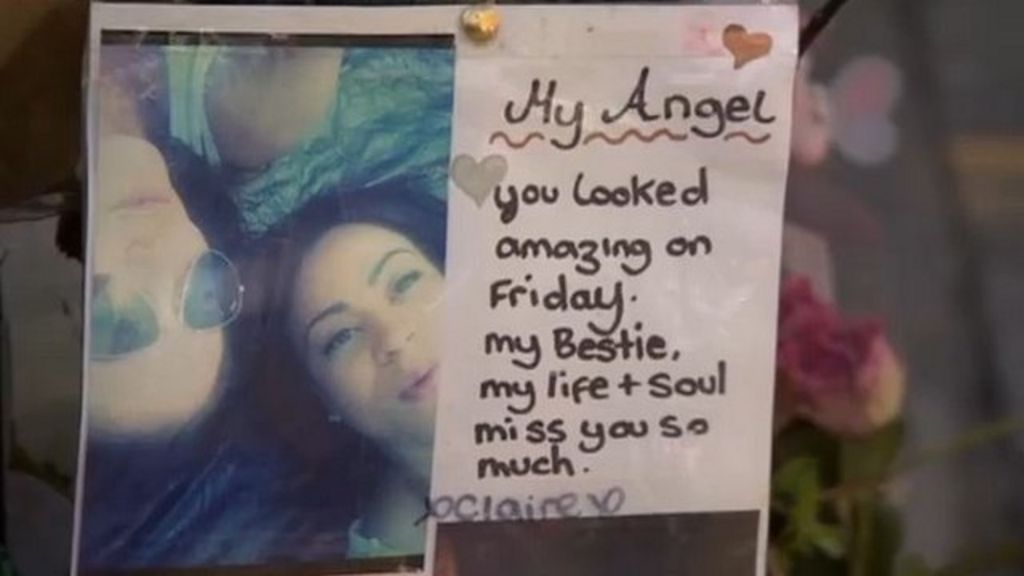 My Angel
you looked
amazing on
Friday.
my Bestie,
my life + Soul
miss you so
much.
xoclairexo